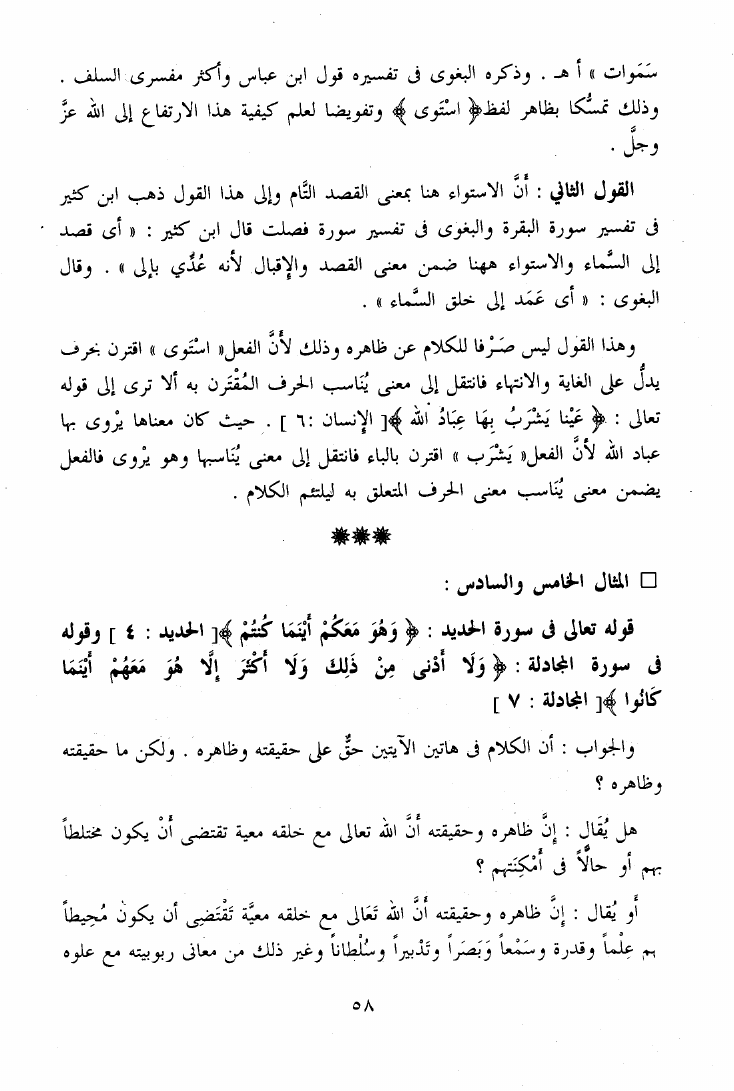 سَمَوات » أ هـ . وذكره البغوى فى تفسيره قول ابن عباس وأكثر مفسرى السلف .
وذلك تمسُّكا بظاهر لفظ﴿ اسْتَوى ﴾ وتفويضا لعلم كيفية هذا الارتفاع إلى الله عزَّ
وجلَّ .
القول الثاني : أَنَّ الاستواء هنا بمعنى القصد التَّام وإلى هذا القول ذهب ابن كثير
فى تفسير سورة البقرة والبغوى فى تفسير سورة فصلت قال ابن كثير : « أى قصد
إلى السَّماء والاستواء ههنا ضمن معنى القصد والإقبال لأنه عُدِّي بإلى » . وقال
البغوى : « أى عَمَد إلى خلق السَّماء » .
وهذا القول ليس صَرْفا للكلام عن ظاهره وذلك لأَنَّ الفعل« اسْتَوى » اقترن بحرف
يدلُّ على الغاية والانتهاء فانتقل إلى معنى يُنَاسب الحرف المُقْتَرن به ألا ترى إلى قوله
تعالى : ﴿ عَيْنا يَشْرَبُ بِهَا عِبَادُ الله ﴾[ الإنسان :٦ ] . حيث كان معناها يرْوى بها
عباد الله لأنَّ الفعل« يَشْرَب » اقترن بالباء فانتقل إلى معنى يُنَاسبها وهو يرْوى فالفعل
يضمن معنى يُنَاسب معنى الحرف المتعلق به ليلتئم الكلام .
□ المثال الخامس والسادس :
قوله تعالى فى سورة الحديد : ﴿ وَهُوَ مَعَكُمْ أَيْنَمَا كُنتُمْ ﴾[ الحديد : ٤ ] وقوله
فى سورة المجادلة : ﴿ وَلَا أَدْنى مِنْ ذَلِكَ وَلَا أَكْثَرَ إِلَّا هُوَ مَعَهُمْ أَيْنَمَا
كَانُوا ﴾[ المجادلة : ٧ ]
والجواب : أن الكلام فى هاتين الآيتين حقٌّ على حقيقته وظاهره . ولكن ما حقيقته
وظاهره ؟
هل يُقَال : إنَّ ظاهره وحقيقته أنَّ الله تعالى مع خلقه معية تقتضى أَنْ يكون مختلطاً
بهم أو حالًّا فى أَمْكِنَتهم ؟
أو يُقال : إنَّ ظاهره وحقيقته أنَّ الله تَعَالى مع خلقه معيَّة تَقْتَضِى أن يكون مُحِيطاً
بهم عِلْماً وقدرة وسَمْعاً وَبَصَراً وتَدْبيراً وسُلْطاناً وغير ذلك من معانى ربوبيته مع علوه
٥٨